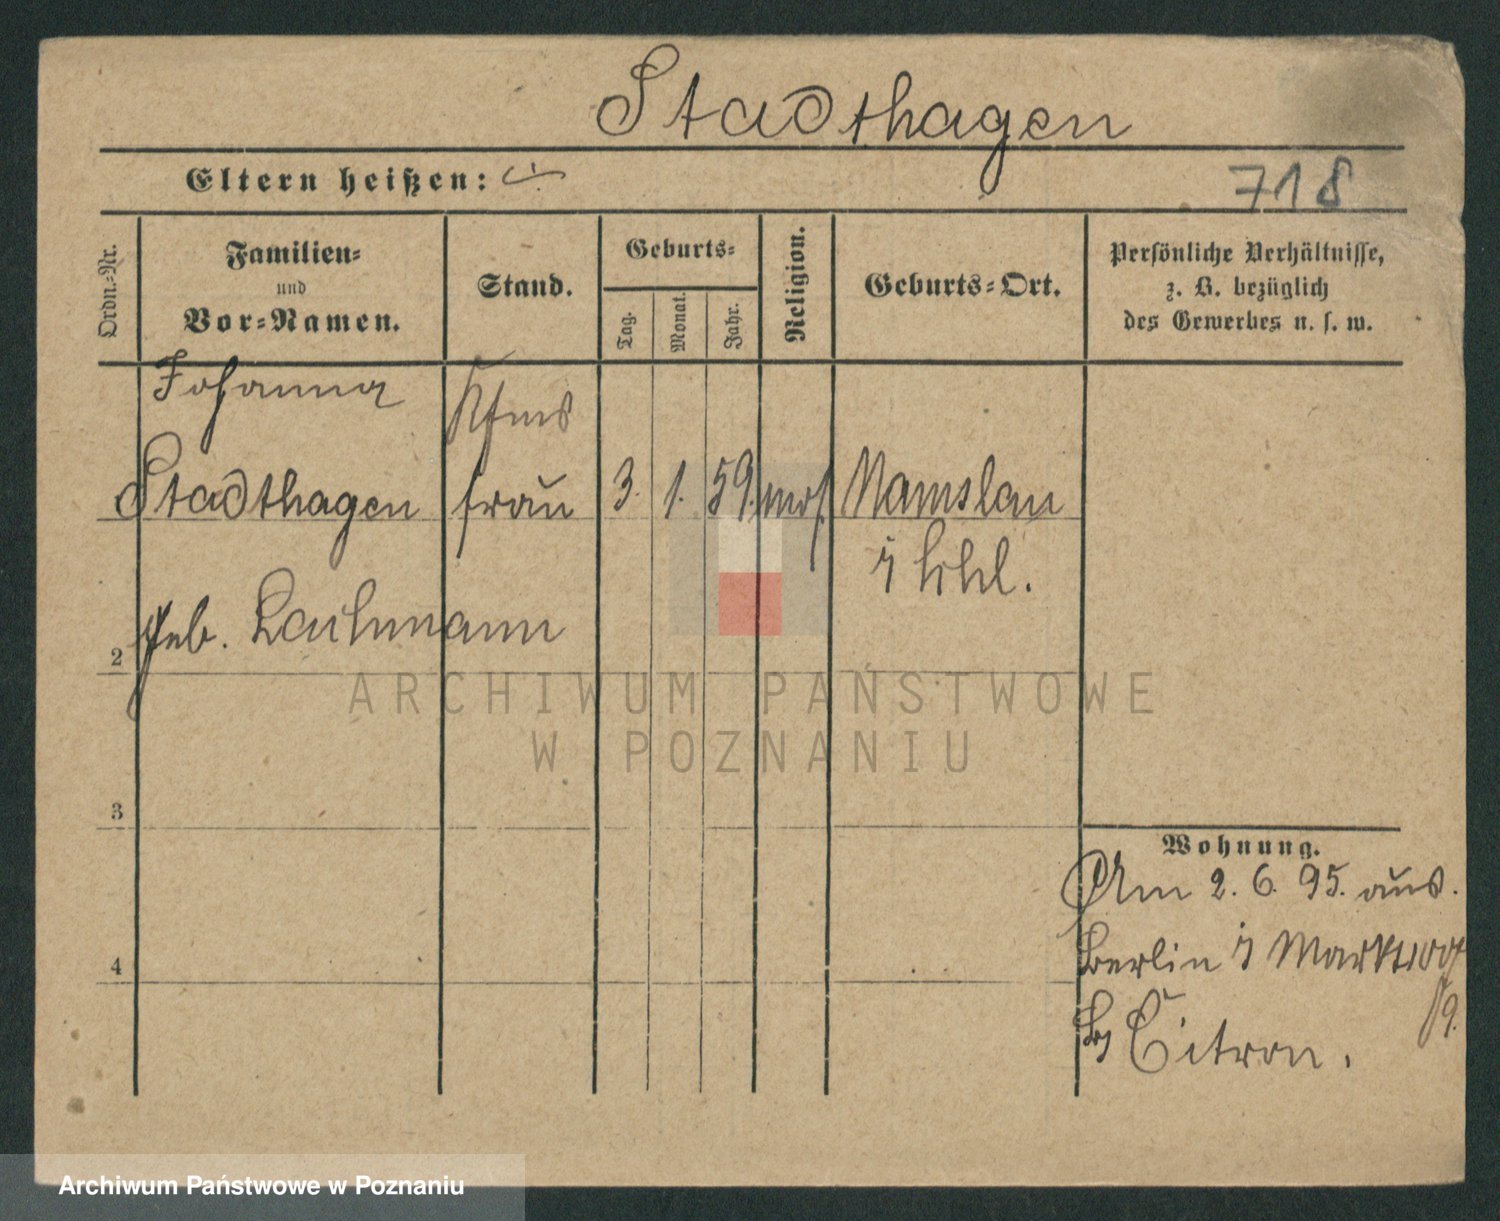 Stadthagen
Eltern heißen:
718
Ordn.-Nr.
Familien-
und
Vor-Namen.
Stand.
Geburts-
Tag.
Monat.
Jahr.
Religion.
Geburts-Ort.
Persönliche Verhältnisse,
z. B. bezüglich
des Gewerbes u. s. w.
Johanna
Kfms
Stadthagen frau 3. 1. 59. mos. Namslau
i Schl.
geb. Lachmann
2
ARCHIWUM PAŃSTWOWE
W POZNANIU
3
Wohnung.
Am 2. 6. 95. aus.
Berlin
4
Citron.
Archiwum Państwowe w Poznaniu